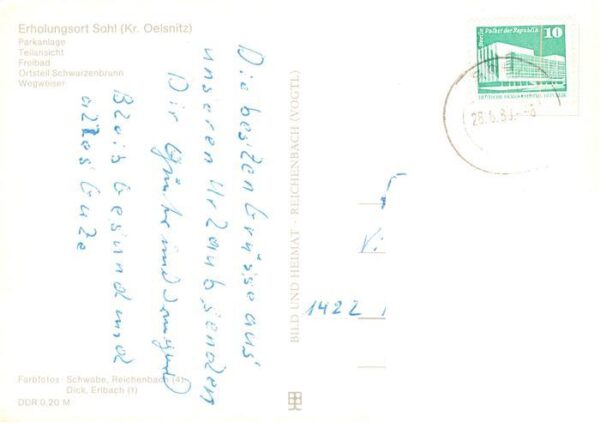 Erholungsort Sohl (Kr. Oelsnitz)
Parkanlage
Teilansicht
Freibad
Ortsteil Schwarzenbrunn
Wegweiser
Die besten Grüsse aus
unseren Urlaub senden
Dir Günter und
Bleib Gesund und
alles Gute
Farbfotos: Schwabe, Reichenbach (4)
Dick, Erlbach (1)
DDR 0,20 M
BILD UND HEIMAT · REICHENBACH (VOGTL)
Berlin Palast der Republik
10
DEUTSCHE DEMOKRATISCHE REPUBLIK
1422